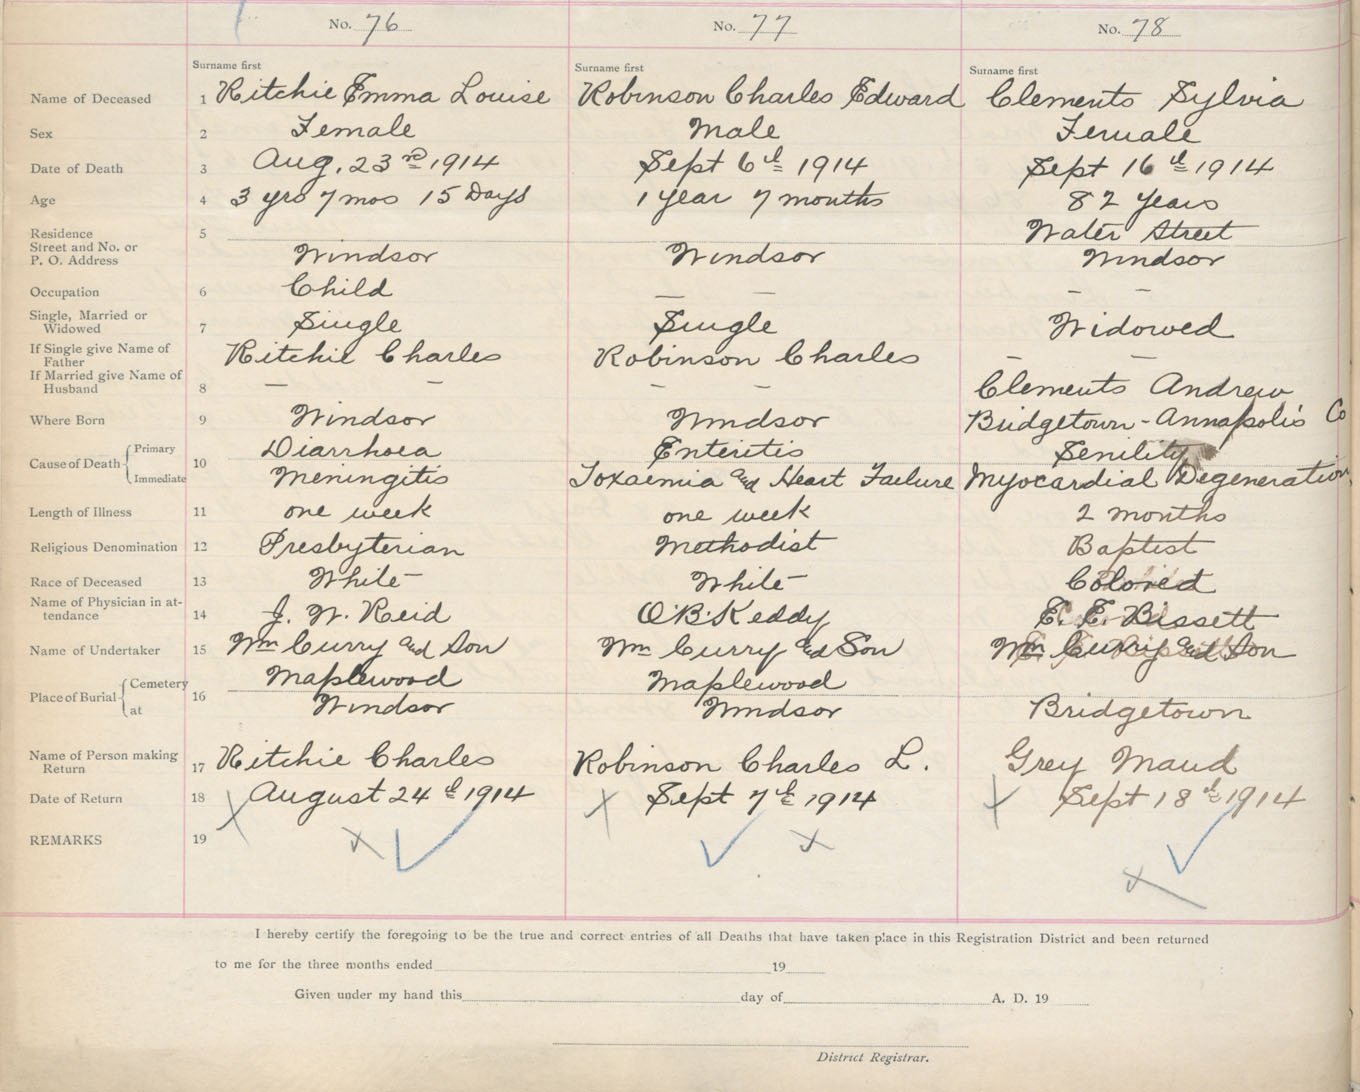 No. 76 No. 77 No. 78
Surname first Surname first Surname first
Name of Deceased 1 Ritchie Emma Louise Robinson Charles Edward Clements Sylvia
Sex 2 Female Male Female
Date of Death 3 Aug. 23rd 1914 Sept 6th 1914 Sept 16th 1914
Age 4 3 yrs 7 mos 15 Days 1 year 7 months 82 years
Residence 5 Water Street
Street and No. or
P. O. Address Windsor Windsor Windsor
Occupation 6 Child — — — —
Single, Married or
Widowed 7 Single Single Widowed
If Single give Name of
Father Ritchie Charles Robinson Charles — —
If Married give Name of
Husband 8 — — — — Clements Andrew
Where Born 9 Windsor Windsor Bridgetown - Annapolis Co
Cause of Death 10 Primary Diarrhoea Enteritis Senility
Immediate Meningitis Toxaemia and Heart Failure Myocardial Degeneration
Length of Illness 11 one week one week 2 months
Religious Denomination 12 Presbyterian Methodist Baptist
Race of Deceased 13 White White Colored
Name of Physician in at-
tendance 14 J. W. Reid O'B. Keddy E. E. Bissett
Name of Undertaker 15 Wm Curry and Son Wm Curry and Son Wm Curry and Son
Place of Burial 16 Cemetery Maplewood Maplewood
at Windsor Windsor Bridgetown
Name of Person making
Return 17 Ritchie Charles Robinson Charles L. Grey Maud
Date of Return 18 August 24th 1914 Sept 7th 1914 Sept 18th 1914
REMARKS 19
I hereby certify the foregoing to be the true and correct entries of all Deaths that have taken place in this Registration District and been returned
to me for the three months ended 19
Given under my hand this day of A. D. 19
District Registrar.